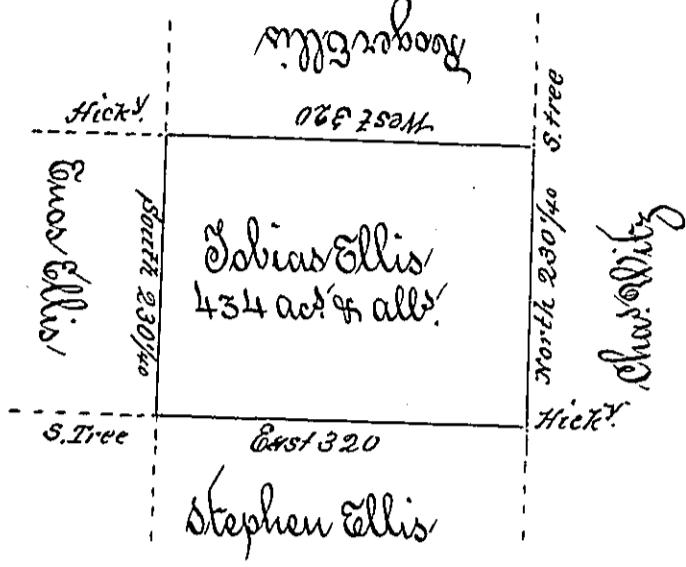 Rooger Ellis
West 320
Hick.y
S. tree
Enos Ellis
South 230 1/40
Tobias Ellis
434 acs. & alls.
North 230 1/40
Chas. Witz
S. Tree
East 320
Hick.y
Stephen Ellis